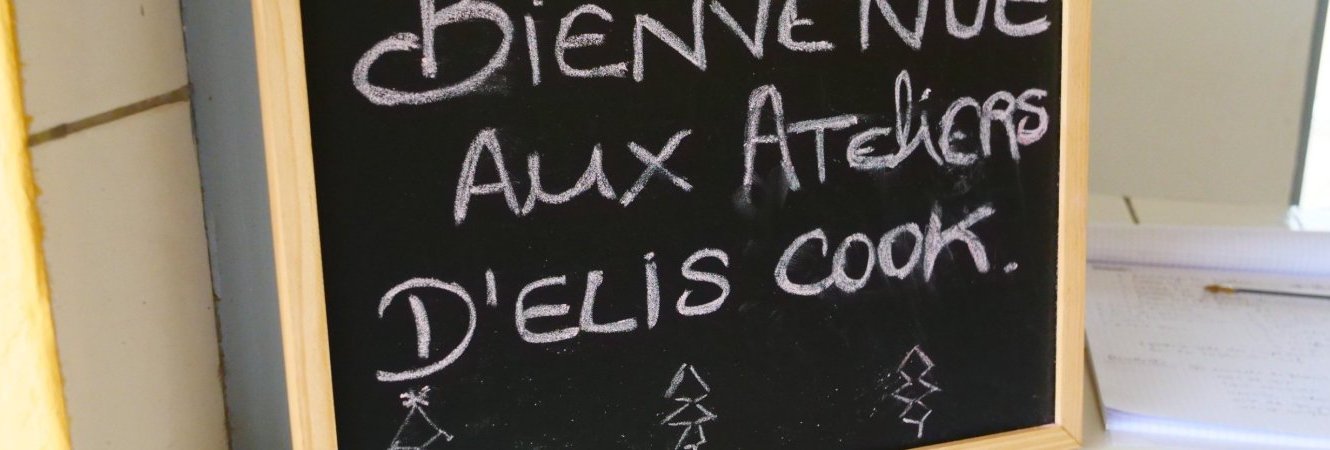 BiENVENUE
AUX ATELiERS
D'ELiS COOK.